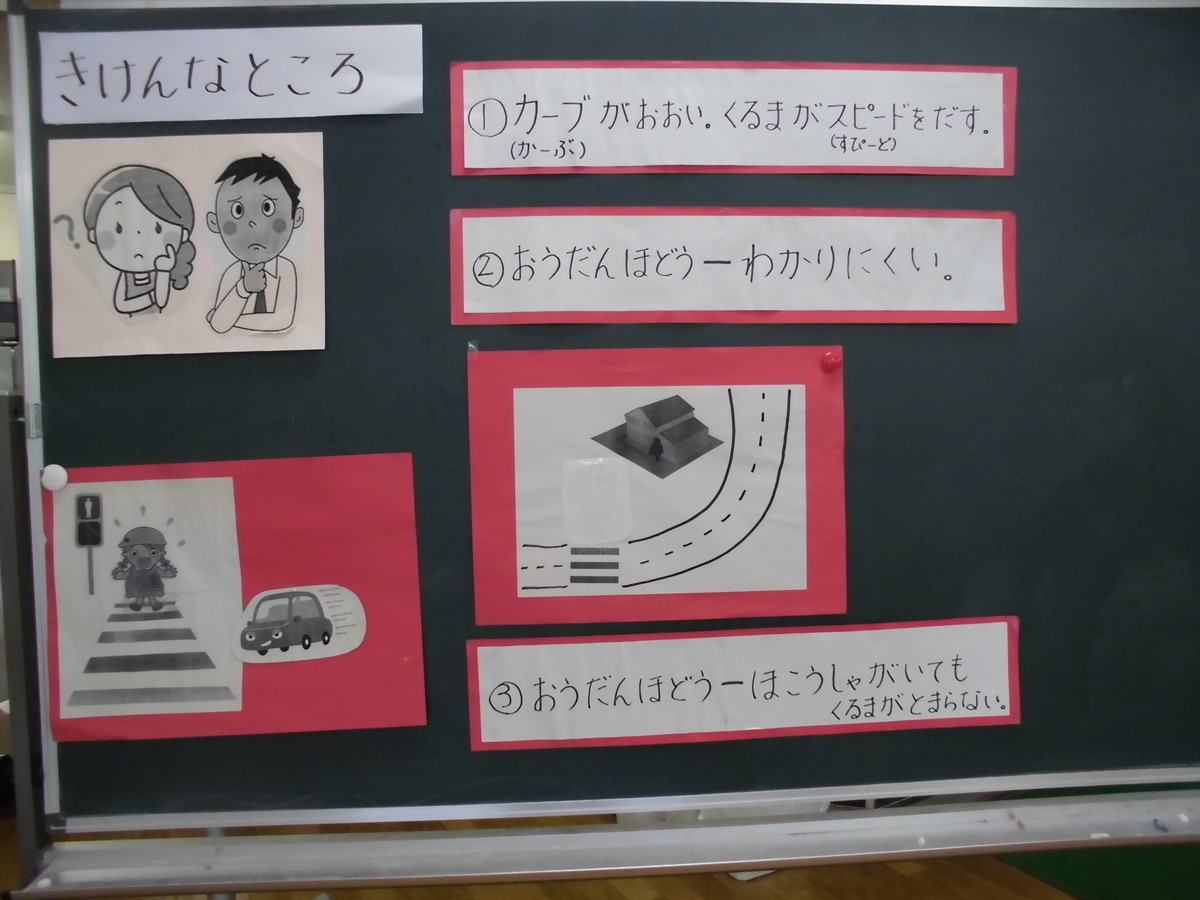 きけんなところ
①カーブがおおい。くるまがスピードをだす。
(かーぶ) (すぴーど)
②おうだんほどうーわかりにくい。
?
③おうだんほどうーほこうしゃがいても
くるまがとまらない。